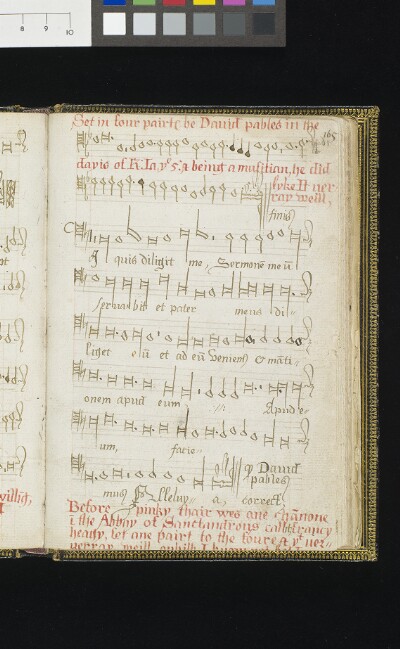 8 9 10
165
Set in four pairtꝭ be Dauid pables in the
dayis of K. Ja. yͤ 5: a being a musitian, he did
lyke It ver
ray weill,
finis
Si quis diligit me, Sermonē meū
seruabit et pater meus di-
liget eū et ad eū veniem⁹ & māti-
onem apud eum :// Apud e-
um, facie-
mus Alleluy- a, correct,
q Dauid
pables
Before pinky, thair wes ane chānone
ī the Abbay of Sanctandrous callit
heagy, set ane pairt to the foure yͭ ver-